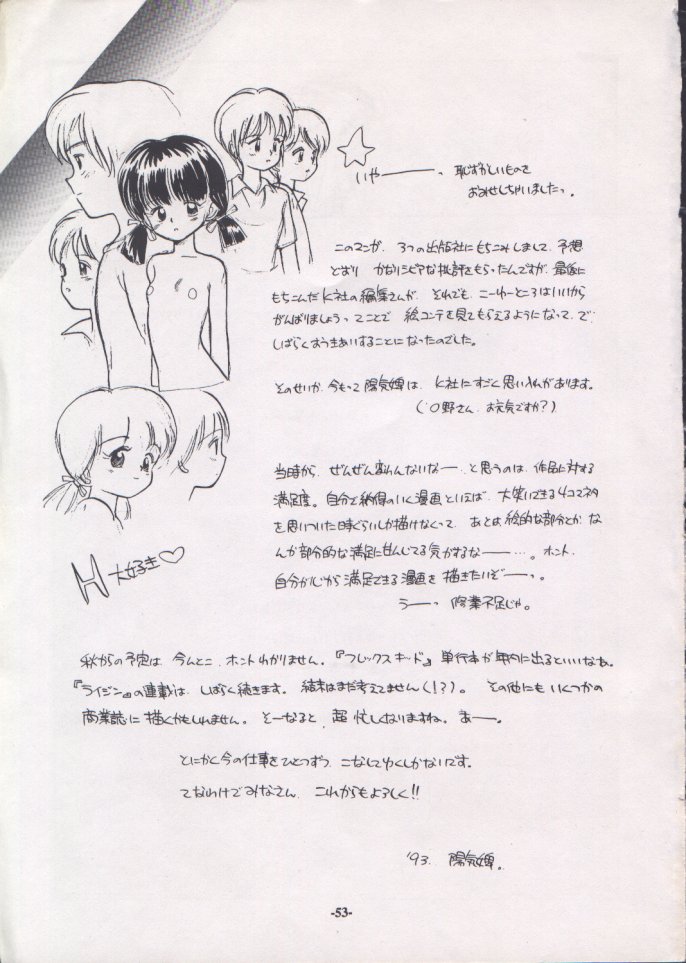 いやーーっ 恥ずかしいものを
おみせしちゃいましたっ。
このマンガ、3つの出版社にもちこみしまして、予想
どおり かなりシビアな批評をもらったんですが、最後に
もちこんだK社の編集さんが、それでも、こーゆーところはいいから
がんばりましょうってことで 絵コンテを見てもらえるようになって、で、
しばらくおつきあいすることになったのでした。
そのせいか、今もって陽気婢は、K社にすごく思い入れがあります。
(〇野さん、お元気ですか?)
当時から、ぜんぜん変わんないなーー、と思うのは、作品に対する
満足度。自分で納得のいく漫画といえば、大笑いできる4コマネタ
を思いついた時ぐらいしか描けなくって、あとは絵的な部分とか、な
んか部分的な満足に甘んじてる気がするなーー…。ホント、
自分が心から満足できる漫画を 描きたいぞーーっ。
うーーっ 修業不足じゃ。
H大好き♡
秋からの予定は、今んとこ、ホントわかりません。『フレックスキッド』単行本が年内に出るといいなぁ。
『ライジン』の連載は、しばらく続きます。結末はまだ考えてません(!?)。その他にもいくつかの
商業誌に描くかもしれません。そーなると、超 忙しくなりますね。あーー。
とにかく今の仕事をひとつずつ こなしてゆくしかないです。
てなわけでみなさん、これからもよろしく!!
'93. 陽気婢。
-53-